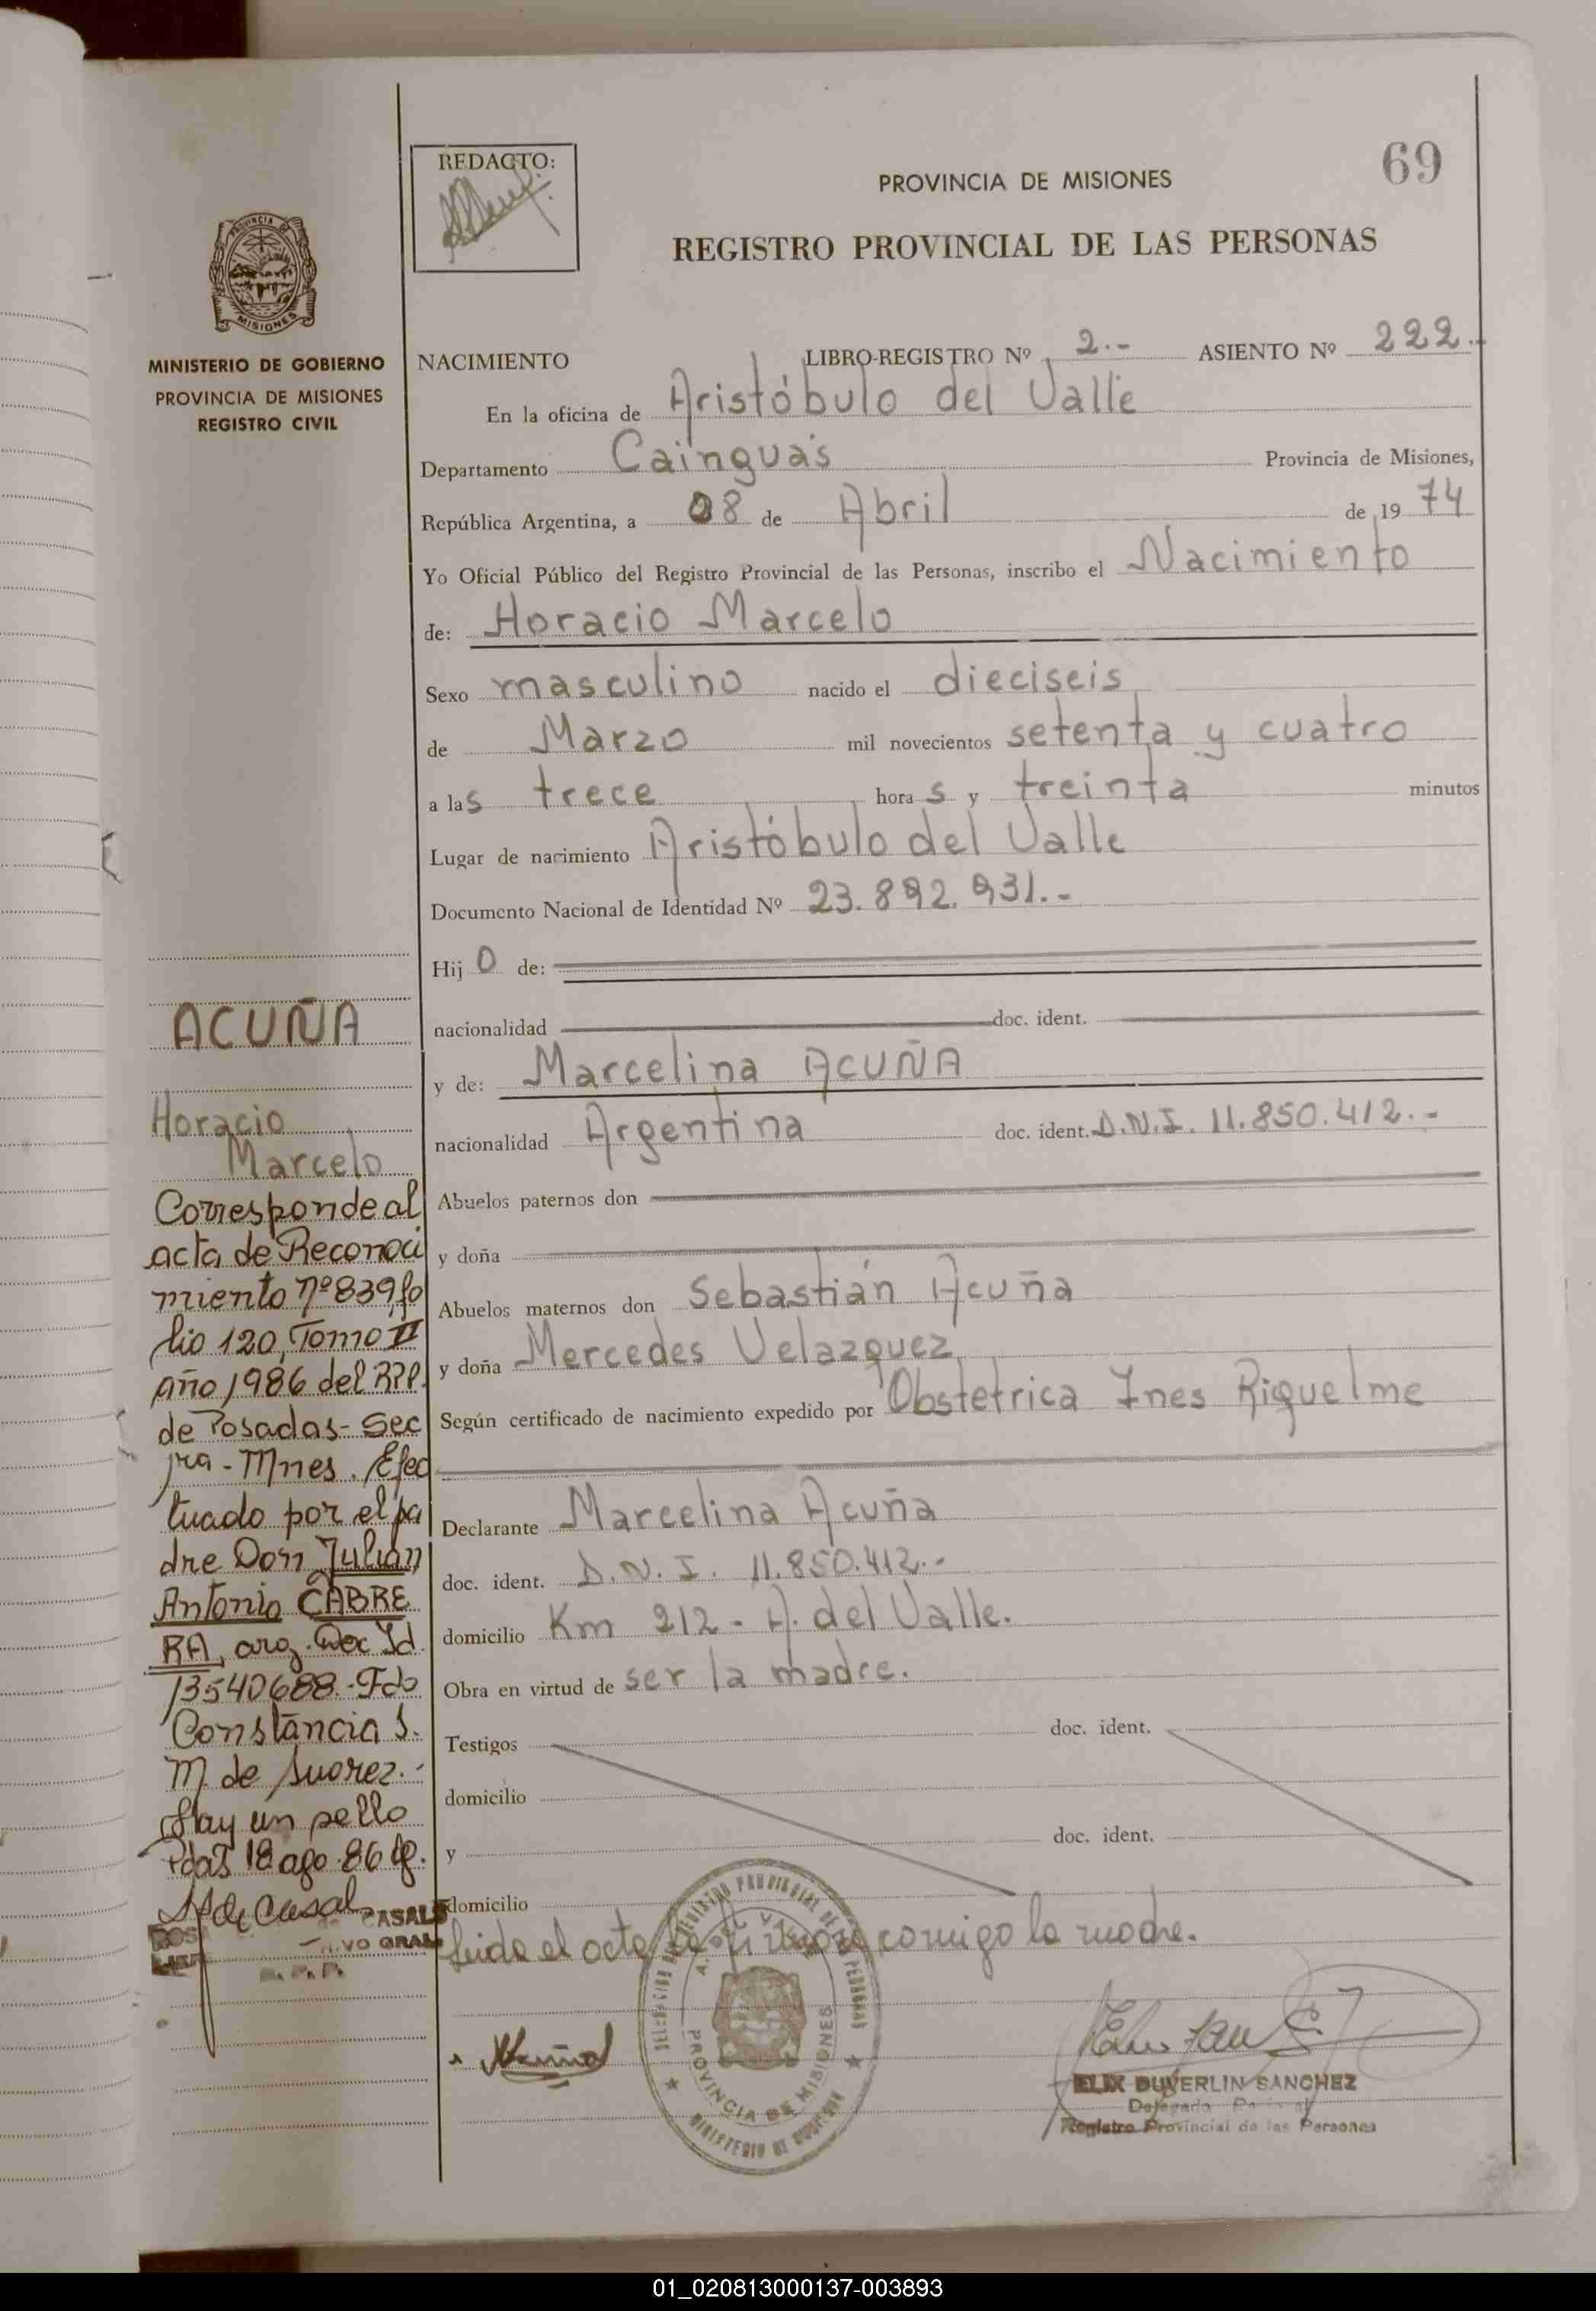 REDACTO:
69
PROVINCIA DE MISIONES
REGISTRO PROVINCIAL DE LAS PERSONAS
PROVINCIA DE
MISIONES
MINISTERIO DE GOBIERNO
PROVINCIA DE MISIONES
REGISTRO CIVIL
NACIMIENTO LIBRO-REGISTRO Nº 2.- ASIENTO Nº 222.-
En la oficina de Aristóbulo del Valle
Departamento Cainguás Provincia de Misiones,
República Argentina, a 08 de Abril de 1974
Yo Oficial Público del Registro Provincial de las Personas, inscribo el Nacimiento
de: Horacio Marcelo
Sexo masculino nacido el dieciseis
de Marzo mil novecientos setenta y cuatro
a las trece horas y treinta minutos
Lugar de nacimiento Aristóbulo del Valle
Documento Nacional de Identidad Nº 23.892.931.-
Hijo de:
nacionalidad doc. ident.
y de: Marcelina ACUÑA
nacionalidad Argentina doc. ident. D.N.I. 11.850.412.-
Abuelos paternos don
y doña
Abuelos maternos don Sebastián Acuña
y doña Mercedes Velazquez
Según certificado de nacimiento expedido por Obstetrica Ines Riquelme
Declarante Marcelina Acuña
doc. ident. D.N.I. 11.850.412.-
domicilio Km 212 - A. del Valle.
Obra en virtud de ser la madre.
Testigos doc. ident.
domicilio
y doc. ident.
domicilio
Leida el acta la firma conmigo la madre.
ACUÑA
Horacio
Marcelo
Corresponde al
acta de Reconoci
miento nº 839, fo
lio 120, Tomo II
año 1986 del RPP.
de Posadas- Sec
jra - Mnes. Efec
tuado por el pa
dre Don Julián
Antonio CABRE
RA, arg. Doc Id.
13540688.- Fdo
Constancia S.
M. de Suarez.-
Hay un sello
Pdas 18 ago. 86
de Casal
CASALS
PROVINCIA DE MISIONES
A. DEL VALLE
ELIX DUVERLIN SANCHEZ
Registro Provincial de las Personas
01_020813000137-003893